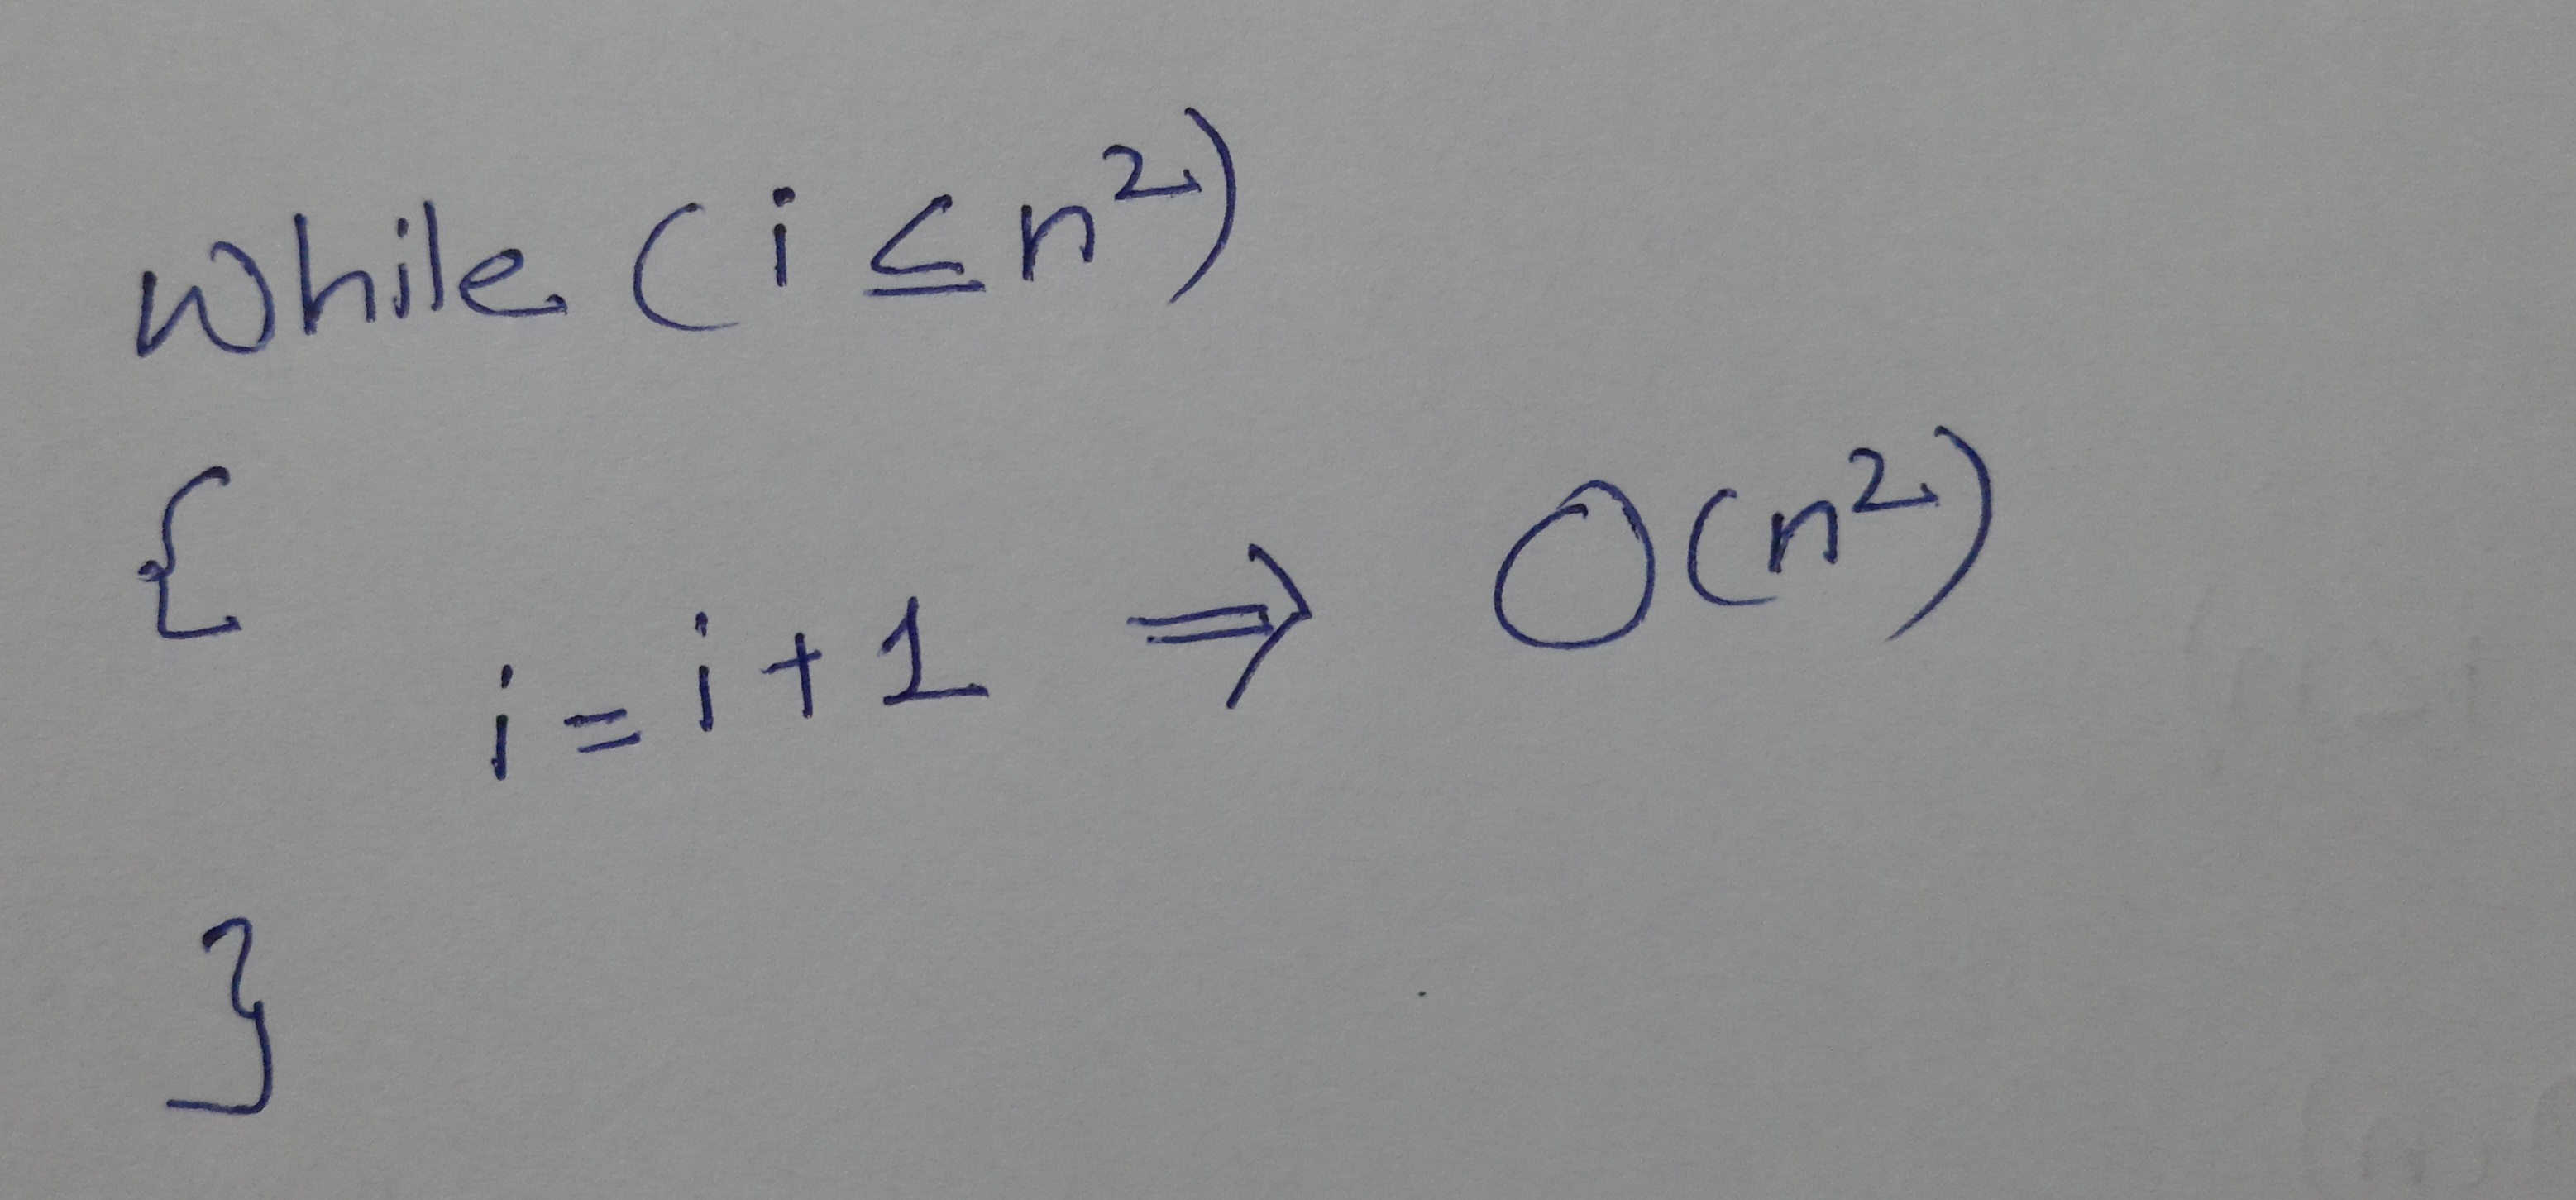 while (i ≤ n²)
{
i = i + 1 ⇒ O(n²)
}